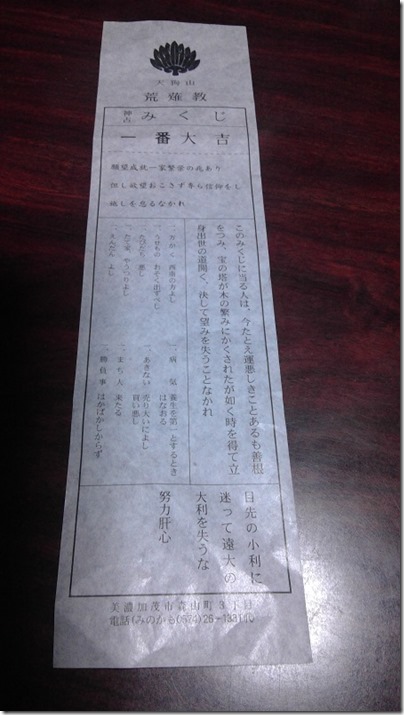 天狗山
荒薙教
神占 みくじ
一番大吉
願望成就一家繁栄の兆あり
但し欲望おこさず専ら信仰をし
施しを怠るなかれ
このみくじに当る人は、今たとえ運悪しきことあるも善根
をつみ、宝の塔が木の繁みにかくされたが如く時を得て立
身出世の道開く、決して望みを失うことなかれ
一、方がく 西南の方よし
一、うせもの おそく出ずべし
一、たびだち 悪し
一、たて家、やうつりよし
一、えんだん よし
一、病気 養生を第一とするとき
はなおる
一、あきない 売り大いによし
買い悪し
一、まち人 来たる
一、勝負事 はかばかしからず
目先の小利に
迷って遠大の
大利を失うな
努力肝心
美濃加茂市森山町3丁目
電話(みのかも(0574)26-